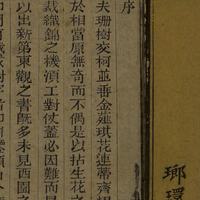 序
夫珊樹交柯並番金薤琪花連蒂齊
於相當原無奇而不偶是以拈生花之
裁織錦之機湏工對仗蓋必因難而見
以出新第東觀之書既多未見西園之
瑯環